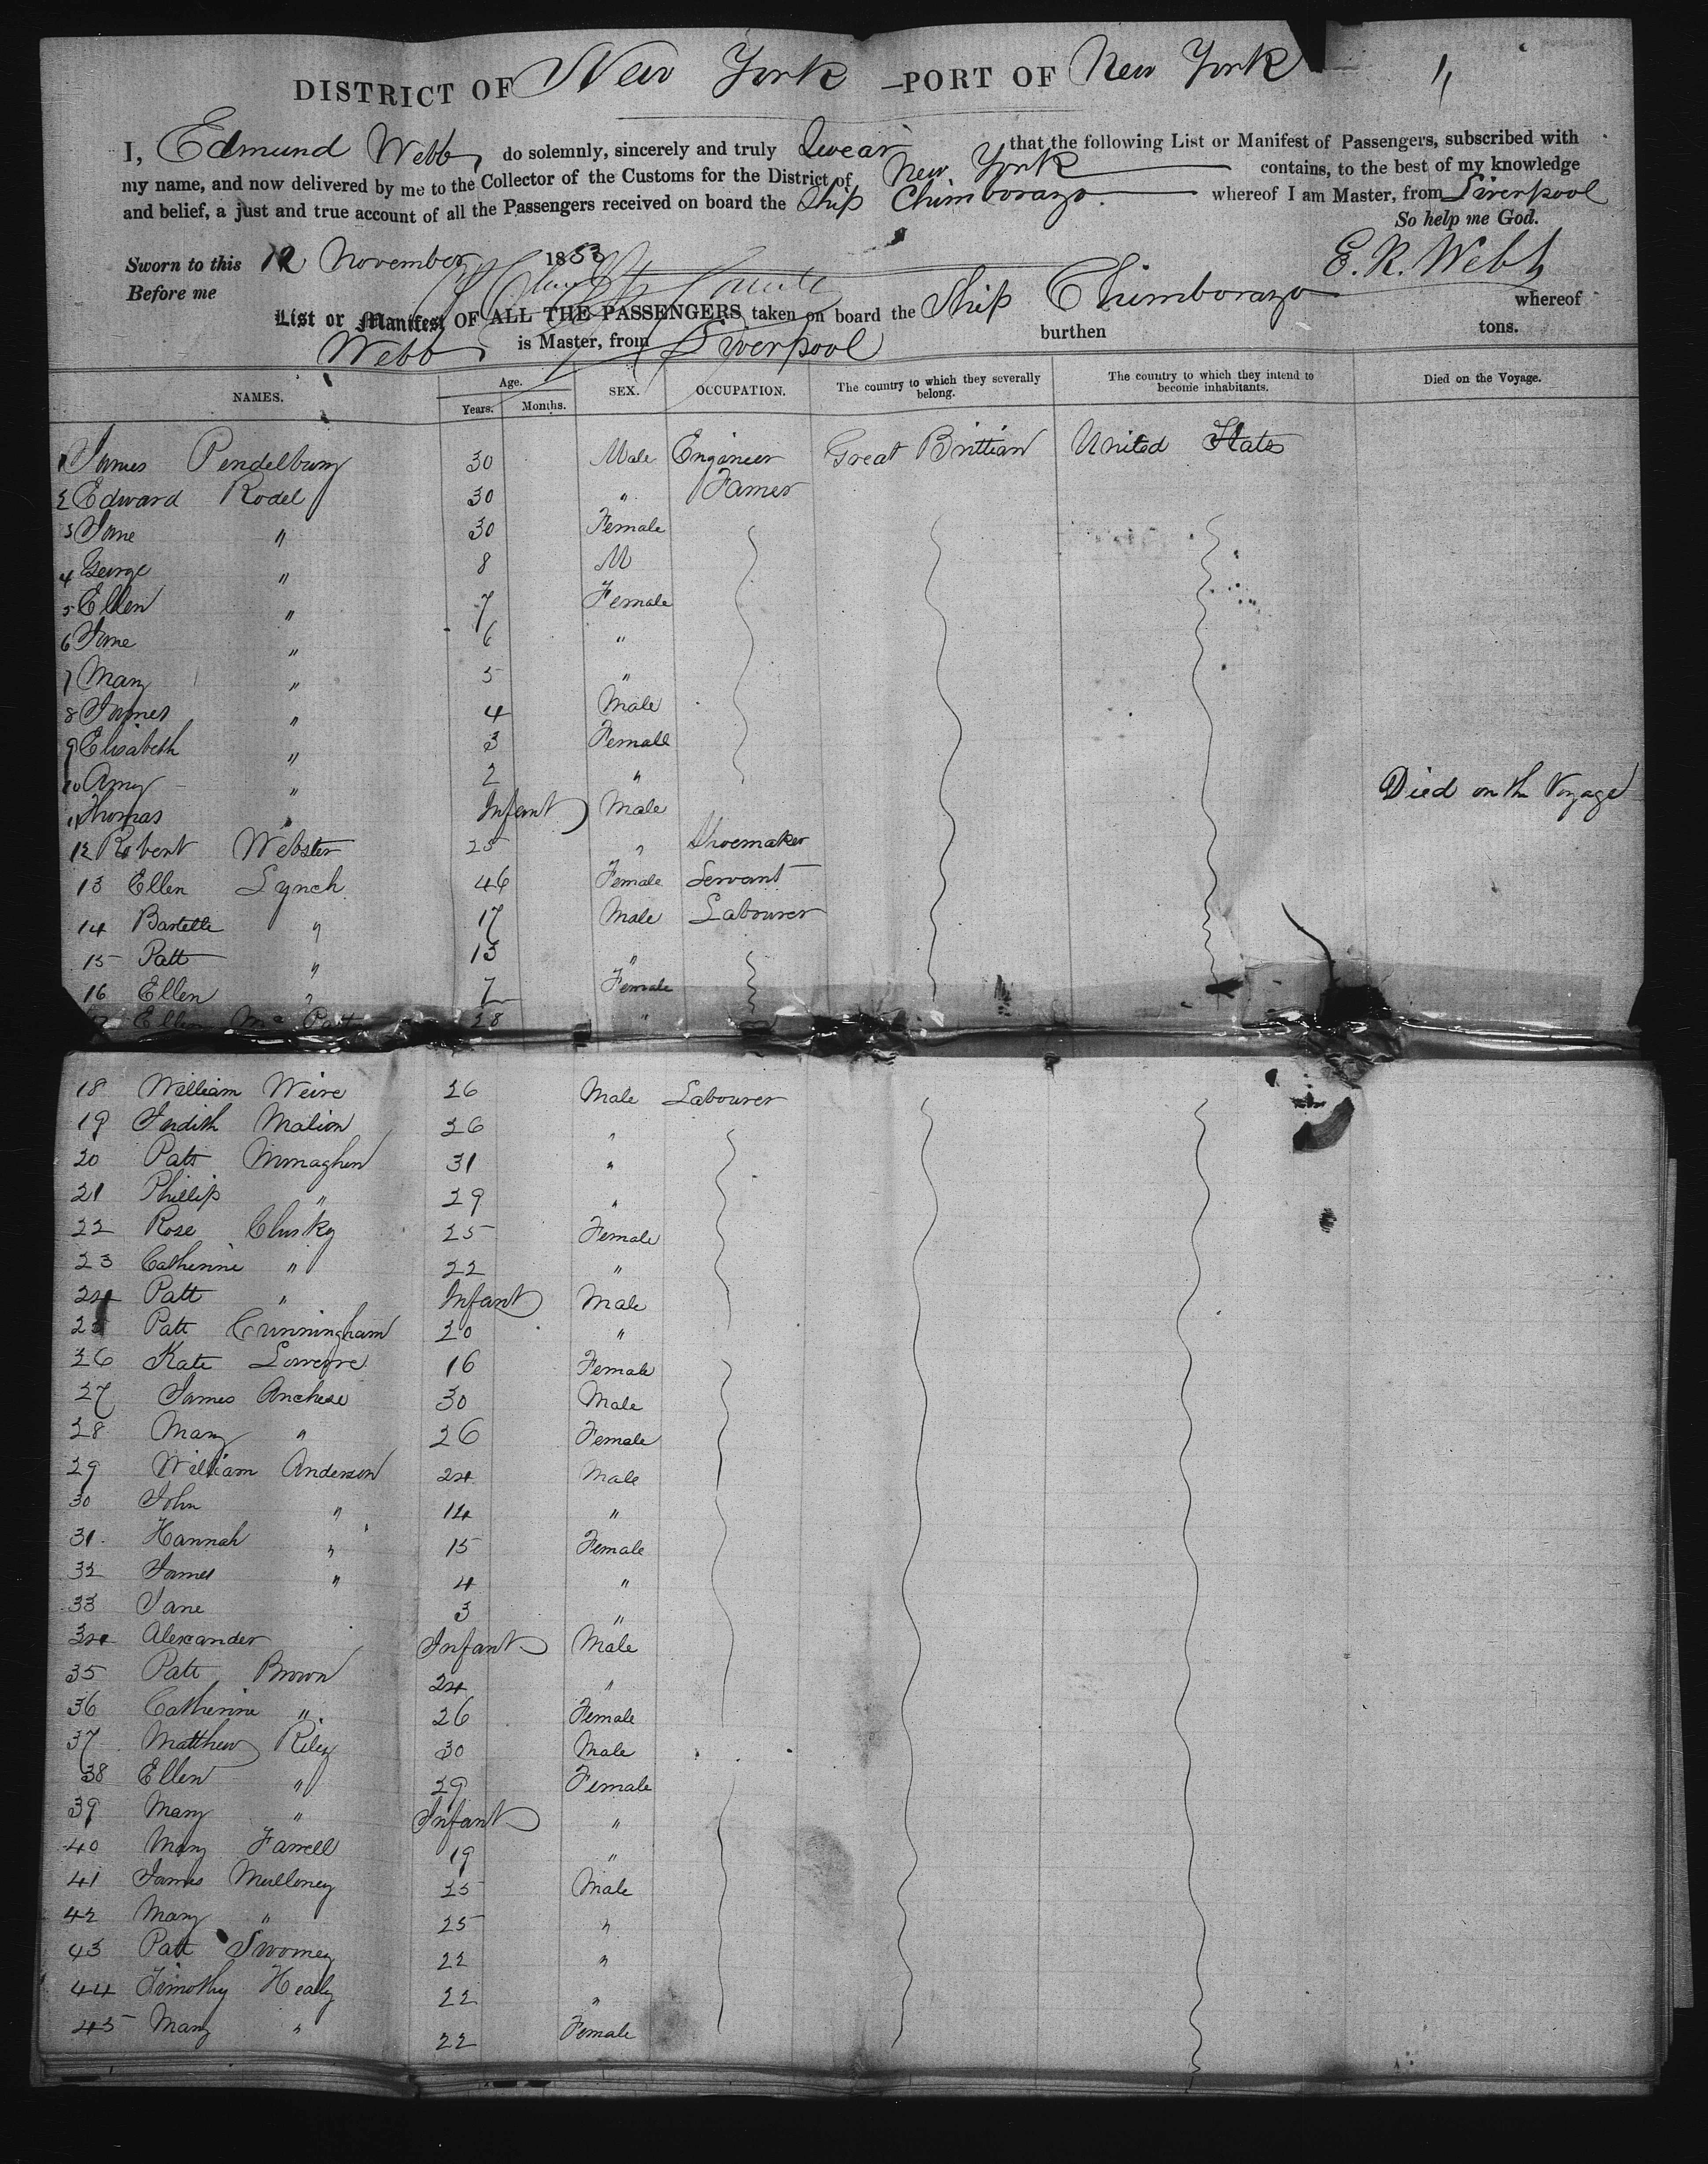 DISTRICT OF New York — PORT OF New York 1,
I, Edmund Webb, do solemnly, sincerely and truly Swear that the following List or Manifest of Passengers, subscribed with
my name, and now delivered by me to the Collector of the Customs for the District of New York contains, to the best of my knowledge
and belief, a just and true account of all the Passengers received on board the Ship Chimborazo. whereof I am Master, from Liverpool
So help me God.
Sworn to this 12 November 1853 E. R. Webb
Before me
List or Manifest OF ALL THE PASSENGERS taken on board the Ship Chimborazo whereof
Webb is Master, from Liverpool burthen tons.
NAMES. Age. Years. Months. SEX. OCCUPATION. The country to which they severally belong. The country to which they intend to become inhabitants. Died on the Voyage.
1 James Pendelbury 30 Male Engineer Great Brittian United States
2 Edward Rodel 30 " Famer
3 Jane " 30 Female
4 George " 8 M
5 Ellen " 7 Female
6 Jane " 6 "
7 Mary " 5 "
8 James " 4 Male
9 Elisabeth " 3 Female
10 Amy " 2 " Died on th Voyage
11 Thomas " Infant Male
12 Robert Webster 25 " Shoemaker
13 Ellen Lynch 46 Female Servant
14 Bartelle " 17 Male Labourer
15 Patt " 13 "
16 Ellen " 7 Female
Ellen Mc 28 "
18 William Weire 26 Male Labourer
19 Judith Malion 26 "
20 Patt Monaghen 31 "
21 Phillip " 29 "
22 Rose Clusky 25 Female
23 Catherine " 22 "
24 Patt " Infant Male
25 Patt Cunningham 20 "
26 Kate 16 Female
27 James Anchese 30 Male
28 Mary " 26 Female
29 William Anderson 24 Male
30 John " 14 "
31 Hannah " 15 Female
32 James " 4 "
33 Jane 3 "
34 Alexander Infant Male
35 Patt Brown 24 "
36 Catherine " 26 Female
37 Matthew Riley 30 Male
38 Ellen " 29 Female
39 Mary " Infant "
40 Mary Farrell 19 "
41 James Mulloney 25 Male
42 Mary " 25 "
43 Patt Swomey 22 "
44 Timothy Healy 22 "
45 Mary " 22 Female